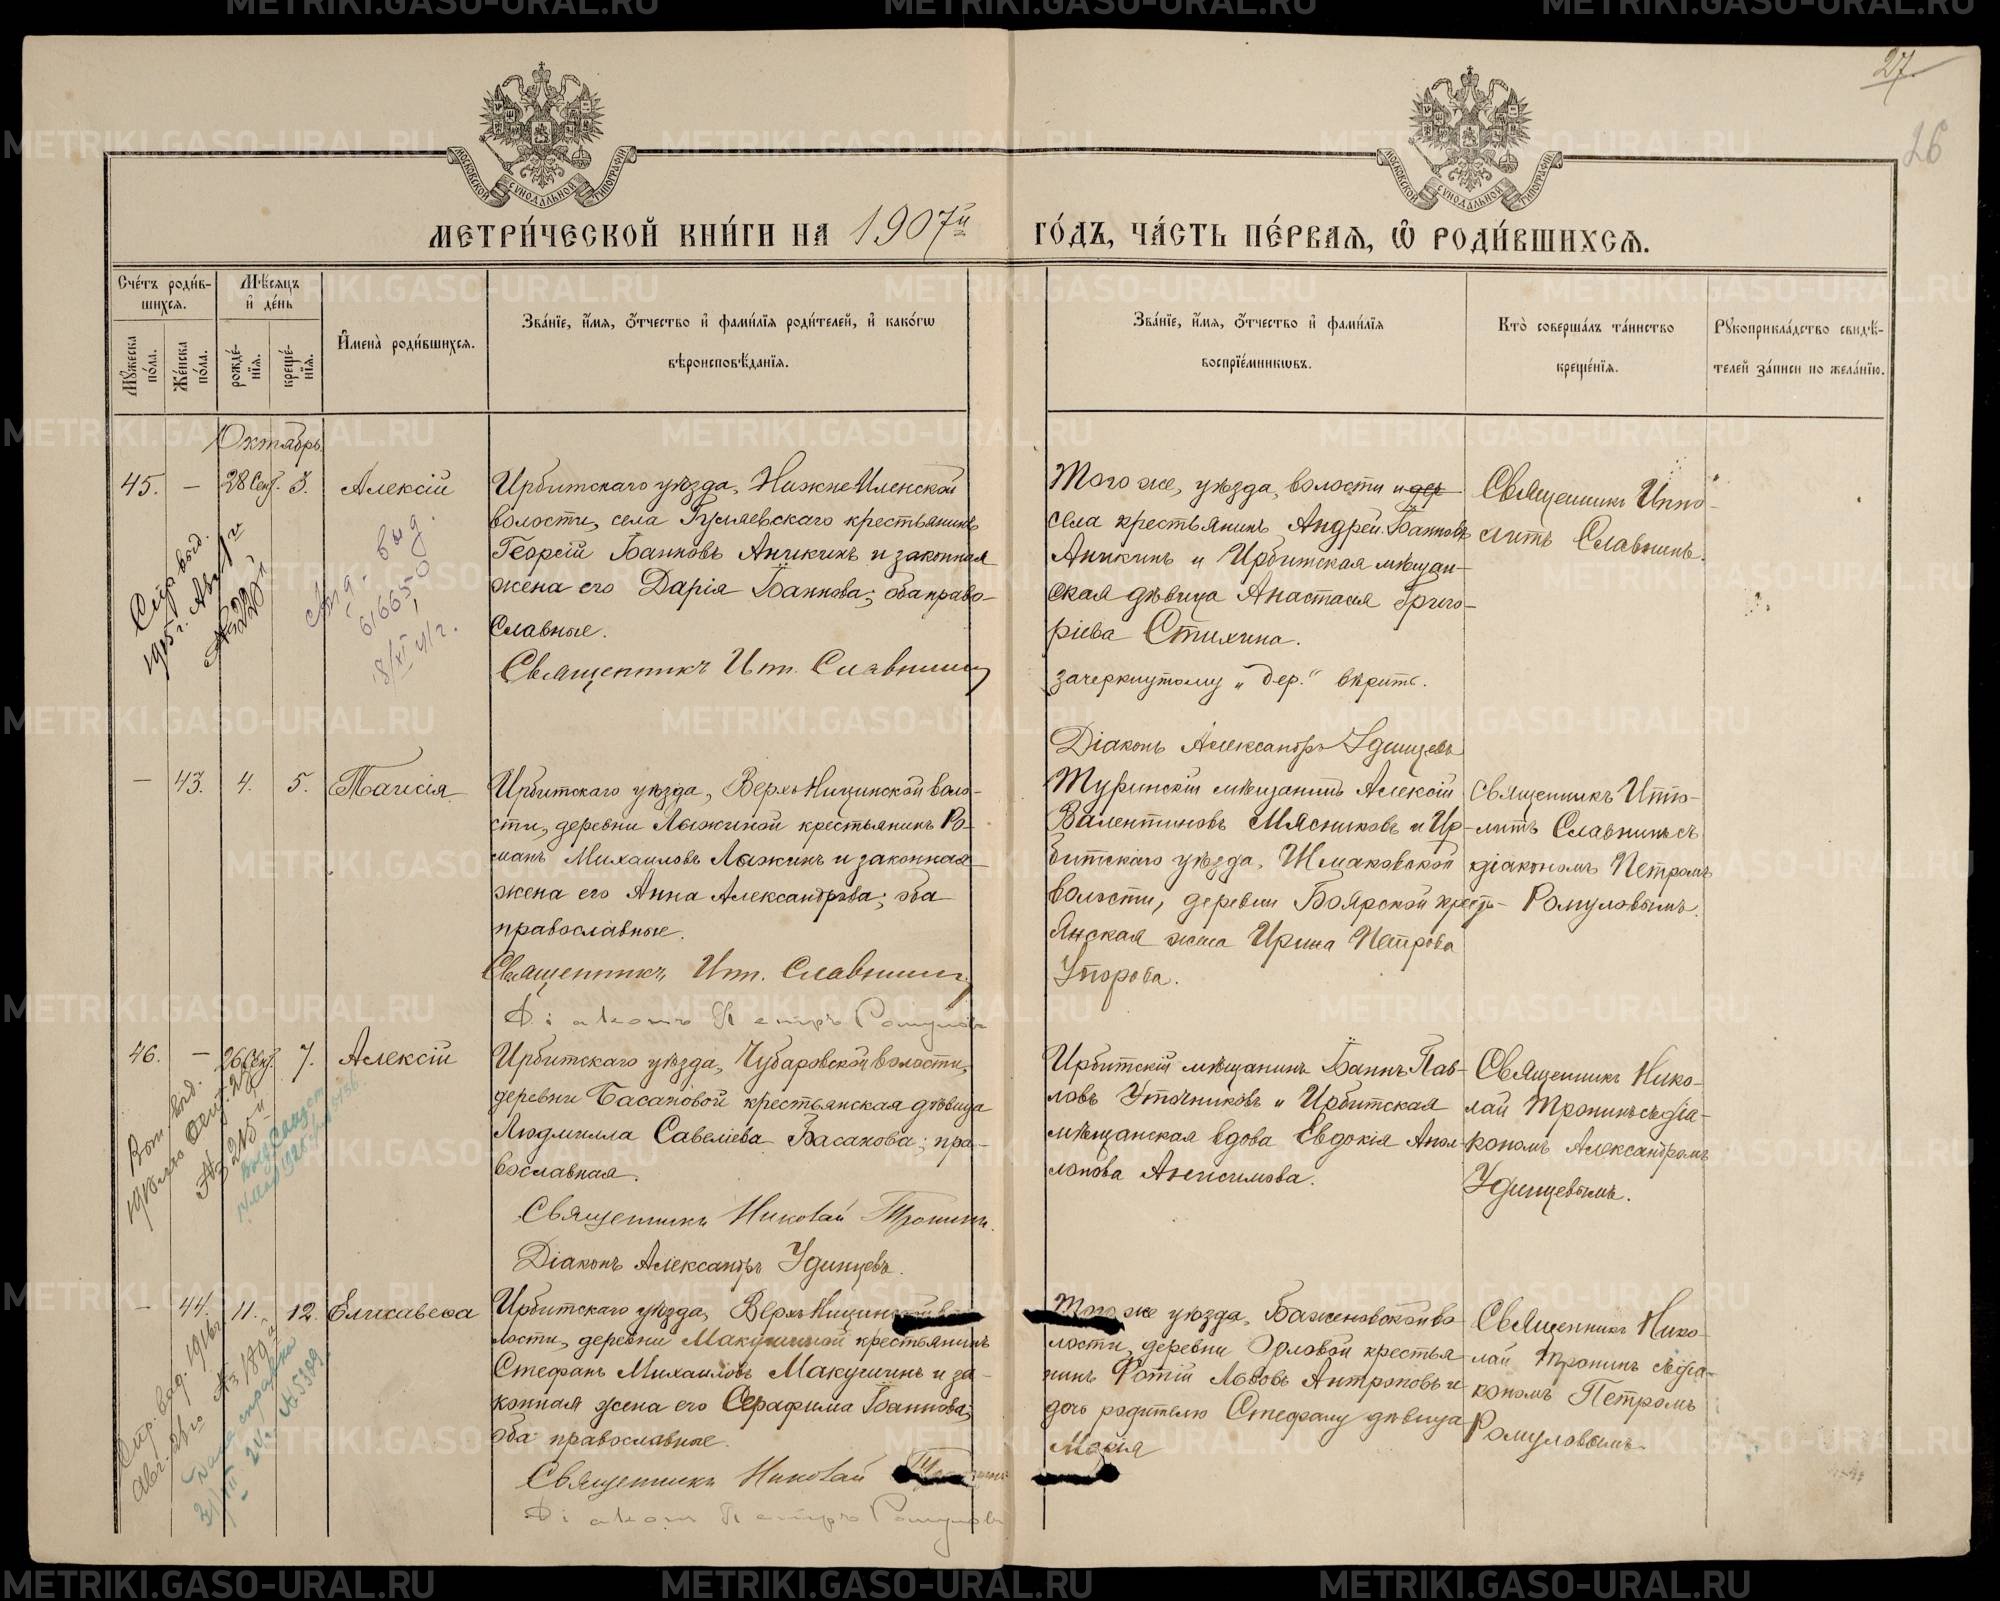 27.
26
МОСКОВСКОЙ СѴНОДАЛЬНОЙ ТИПОГРАФІИ
МОСКОВСКОЙ СѴНОДАЛЬНОЙ ТИПОГРАФІИ
МЕТРИ́ЧЕСКОЙ КНИ́ГИ НА 1907й ГО́ДЪ, ЧА́СТЬ ПЕ́РВАѦ, Ѡ РОДИ́ВШИХСѦ.
Сче́тъ роди́в-
шихсѧ.
Мꙋ́жеска по́ла.
Же́нска по́ла.
Мѣ́сѧцъ
и҆ де́нь
рожде́-
нїѧ.
креще́-
нїѧ.
И҆мена̀ роди́вшихсѧ.
Зва́нїе, и҆́мѧ, ѻ҆́тчество и҆ фами́лїѧ роди́телей, и҆ како́гѡ
вѣроисповѣ́данїѧ.
Зва́нїе, и҆́мѧ, ѻ҆́тчество и҆ фами́лїѧ
воспрїе́мникѡвъ.
Кто̀ соверша́лъ та́инство
креще́нїѧ.
Рꙋкоприкла́дство свидѣ́-
телей за́писи по жела́нїю.
Октябрь
45. — 28 Сент. 3. Алексій
Ирбитскаго уѣзда, Нижне Иленской
волости, села Гуляевскаго крестьянинъ
Георгій Іоанновъ Аникинъ и законная
жена его Дарія Іоаннова; оба право-
славные.
Священникъ Ип. Славнинъ
Того же, уѣзда, волости и дер
села крестьянинъ Андрей Іоанновъ
Аникинъ и Ирбитская мѣщан-
ская дѣвица Анастасія Григо-
ріева Стихина.
зачеркнутому „дер.“ вѣрить.
Діаконъ Александръ Удинцевъ
Священникъ Иппо-
литъ Славнинъ.
выд.
616650
8/XI 41 г.
— 43. 4. 5. Таисія
Ирбитскаго уѣзда, Верхъ Ницинской воло-
сти, деревни Лыжиной крестьянинъ Ро-
манъ Михаиловъ Лыжинъ и законная
жена его Анна Александрова; оба
православные.
Священникъ Ип. Славнинъ
Діаконъ Петръ Ромуловъ
Туринскій мѣщанинъ Алексій
Валентиновъ Мясниковъ и Ир-
битскаго уѣзда, Шмаковской
волости, деревни Боярской кресть-
янская жена Ирина Петрова
Упорова.
Священникъ Иппо-
литъ Славнинъ съ
діакономъ Петромъ
Ромуловымъ.
46. — 26 Сент. 7. Алексій
Ирбитскаго уѣзда, Чубаровской волости,
деревни Басановой крестьянская дѣвица
Людмилла Савеліева Басанова; пра-
вославная.
Священникъ Николай Тронинъ.
Діаконъ Александръ Удинцевъ.
Ирбитскій мѣщанинъ Іоаннъ Пав-
ловъ Уточниковъ и Ирбитская
мѣщанская вдова Евдокія Апол-
лонова Анисимова.
Священникъ Нико-
лай Тронинъ съ діа-
кономъ Александромъ
Удинцевымъ.
— 44. 11. 12. Елисавета
Ирбитскаго уѣзда, Верхъ Ницинской во-
лости, деревни Макушиной крестьянинъ
Стефанъ Михаиловъ Макушинъ и за-
конная жена его Серафима Іоаннова;
оба православные.
Священникъ Николай Тронинъ
Діаконъ Петръ Ромуловъ
Того же уѣзда, Баженовской во
лости, деревни Орловой крестья
нинъ Фотій Львовъ Антроповъ и
дочь родителю Стефану дѣвица
Марія
Священникъ Нико-
лай Тронинъ съ діа-
кономъ Петромъ
Ромуловымъ.
METRIKI.GASO-URAL.RU